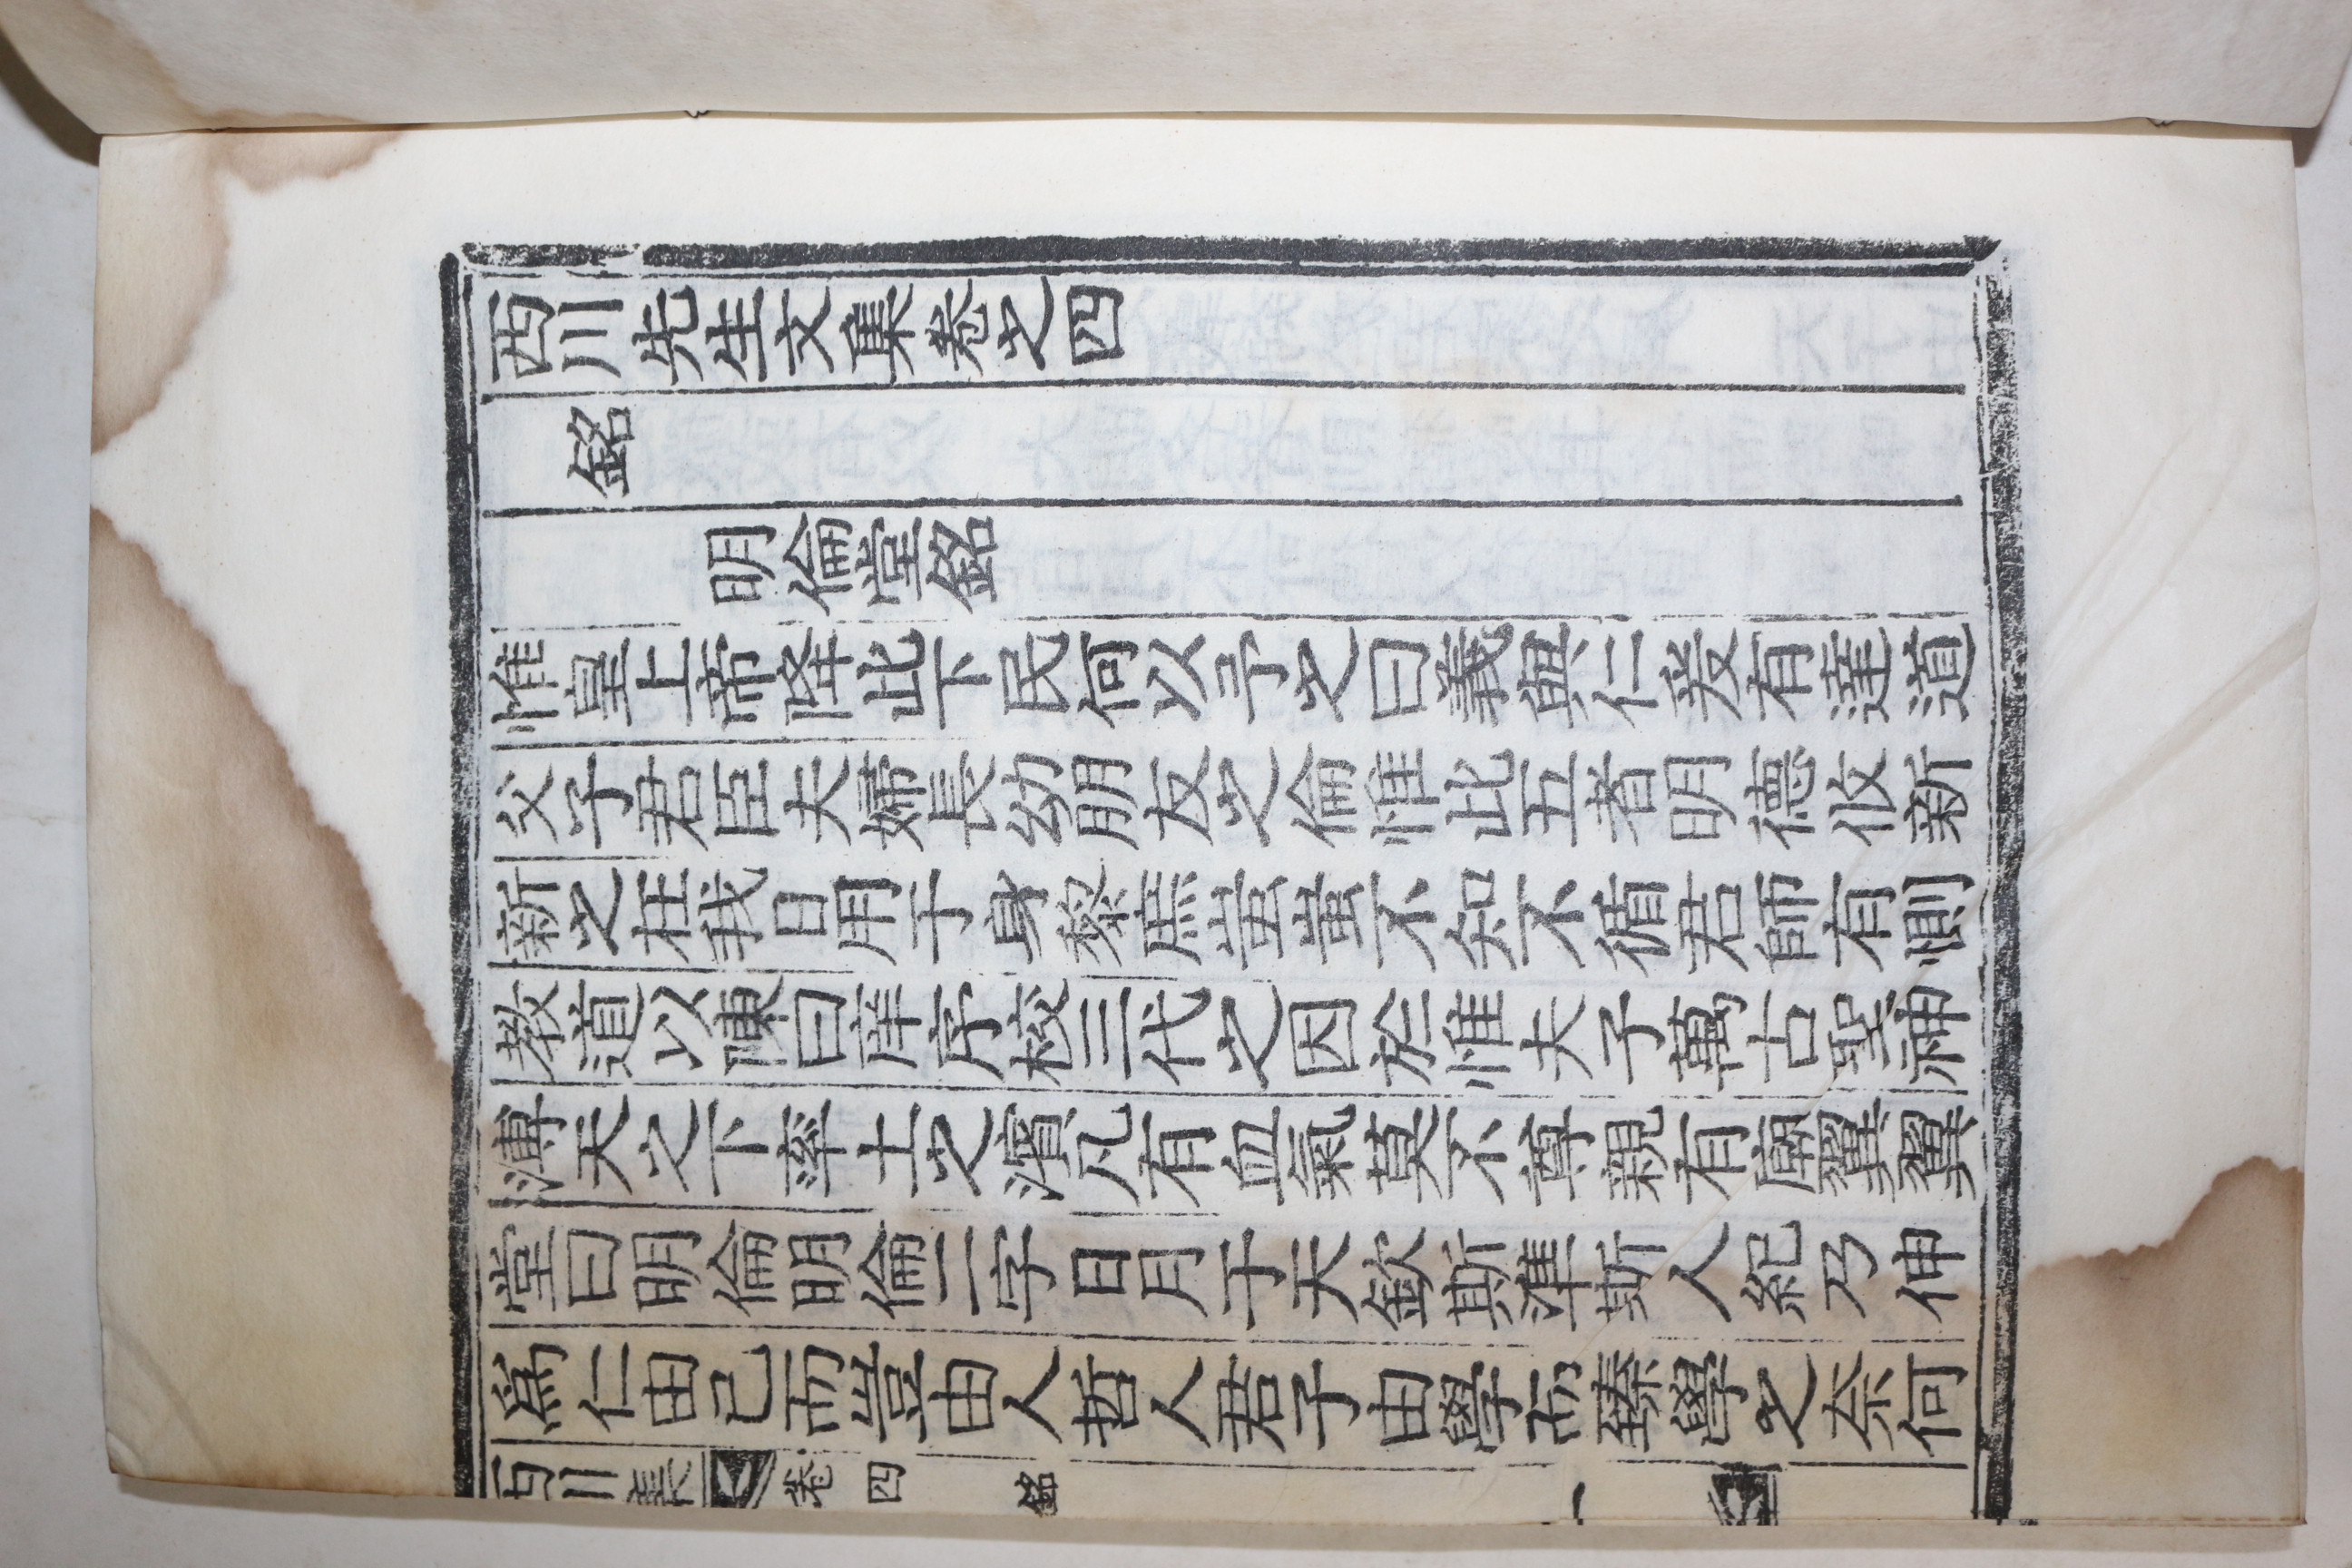 西川先生文集卷之四
銘
明倫堂銘
惟皇上帝降此下民何以予之曰義與仁爰有達道
父子君臣夫婦長幼朋友之倫惟此五者明德攸新
新之在我日用于身黎庶蚩蚩不知不循君師有惻
敎道以陳曰庠序校三代之因於惟夫子萬古聖神
溥天之下率土之濱凡有血氣莫不尊親有廟翼翼
堂曰明倫明倫二字日月于天欽斯準斯人紀乃伸
爲仁由已而豈由人哲人君子由學而臻學之奈何
西川集 卷四 銘 一